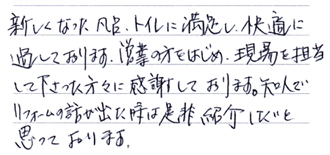 新しくなった風呂、トイレに満足し、快適に
過しております。営業の方をはじめ、現場を担当
して下さった方々に感謝しております。知人で
リフォームの話が出た時は是非紹介したいと
思っております。